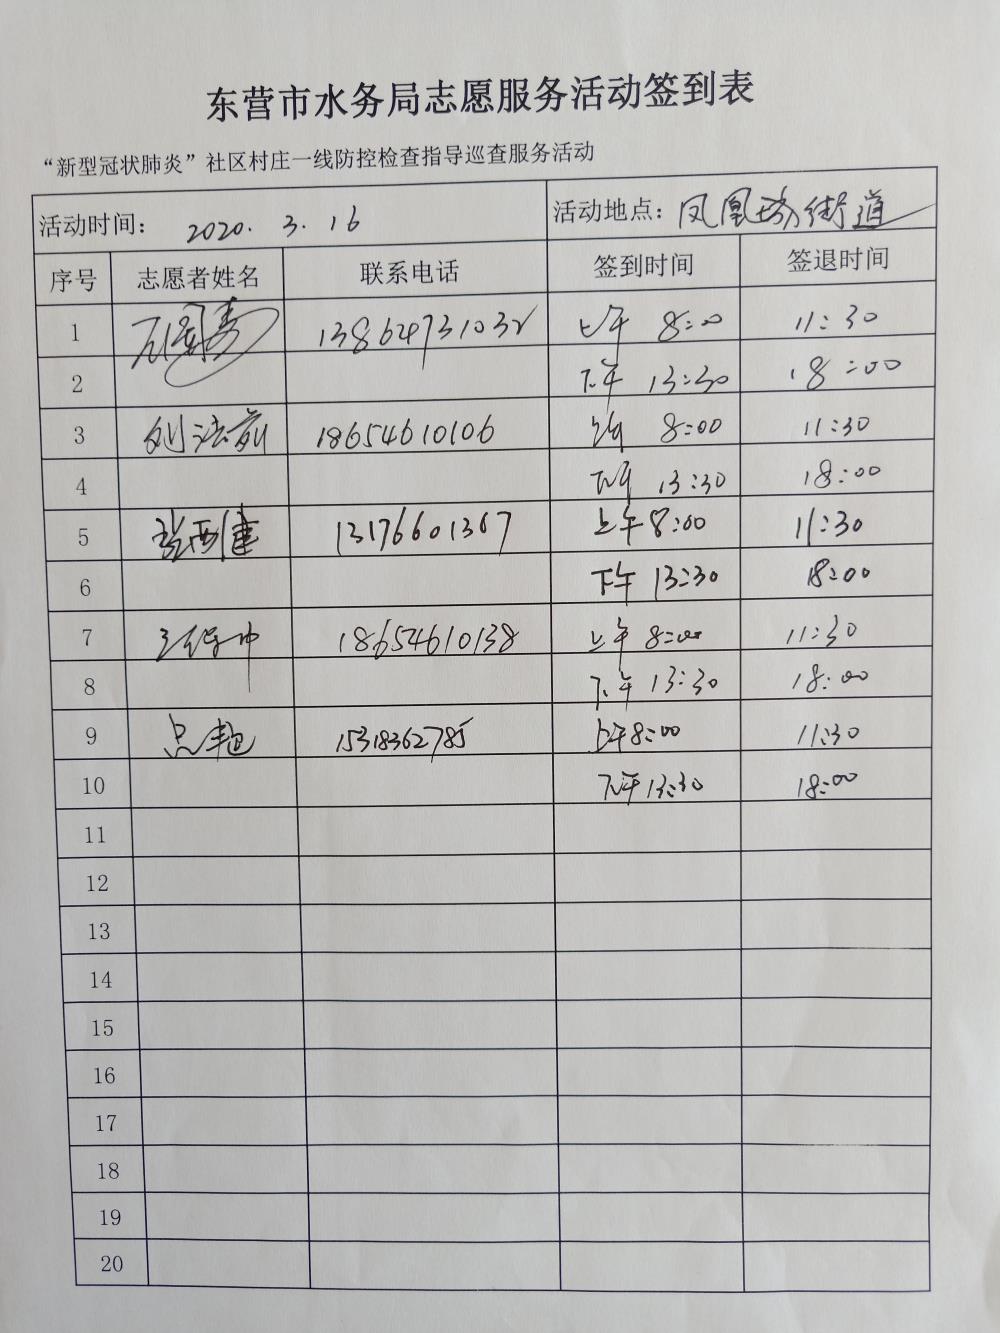 东营市水务局志愿服务活动签到表
“新型冠状肺炎”社区村庄一线防控检查指导巡查服务活动
活动时间： 2020. 3. 16 活动地点：凤凰城街道
序号 志愿者姓名 联系电话 签到时间 签退时间
1 13864731032 上午 8:00 11:30
2 下午 13:30 18:00
3 刘法前 18654610106 上午 8:00 11:30
4 下午 13:30 18:00
5 张西健 13176601367 上午 8:00 11:30
6 下午 13:30 18:00
7 王保中 18654610138 上午 8:00 11:30
8 下午 13:30 18:00
9 15318362785 上午 8:00 11:30
10 下午 13:30 18:00
11
12
13
14
15
16
17
18
19
20